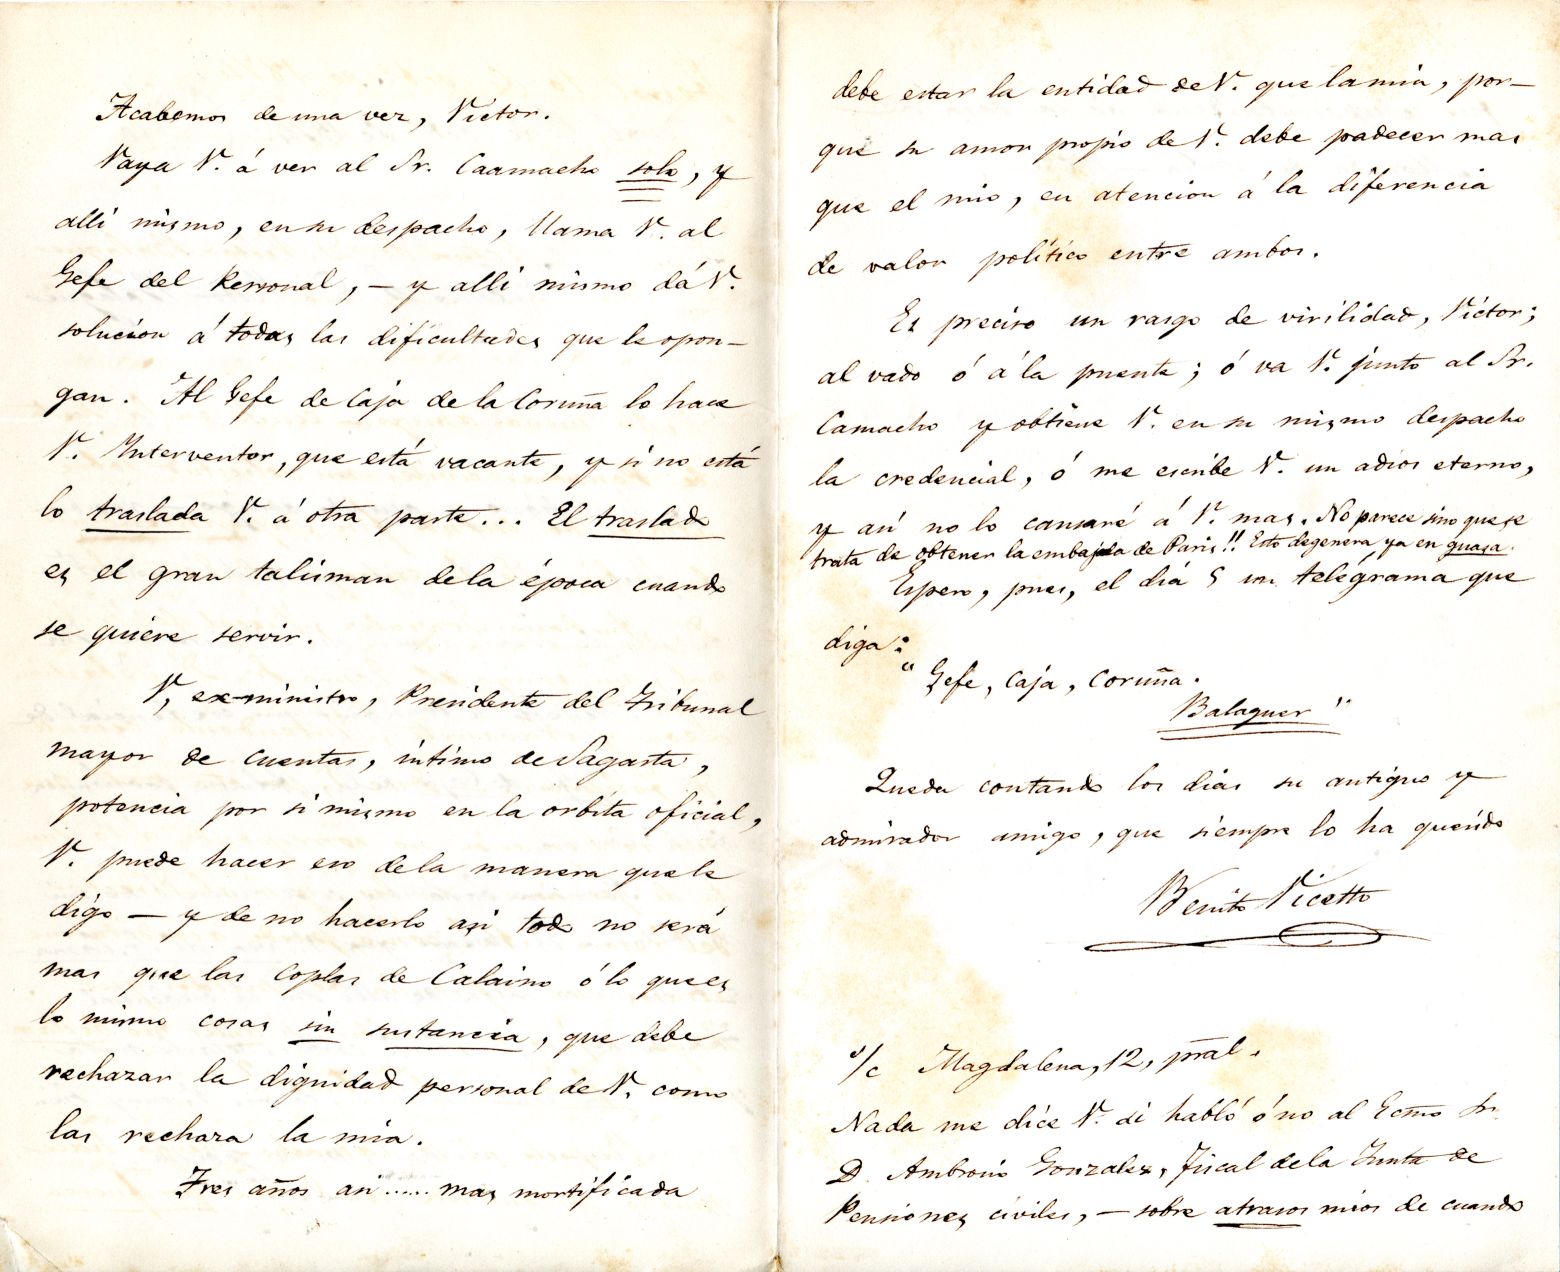 Acabemos de una vez, Víctor.
Vaya V. á ver al Sr. Caamacho solo, y
alli mismo, en su despacho, llama V. al
Gefe del Personal, — y alli mismo dá V.
solucion á todas las dificultades que le opon-
gan. Al Gefe de Caja de la Coruña lo hace
V. Interventor, que está vacante, y si no está
lo traslada V. á otra parte... El traslado
es el gran talisman de la época cuando
se quiere servir.
V, ex-ministro, Presidente del Tribunal
mayor de cuentas, íntimo de Sagasta,
potencia por si mismo en la orbita oficial,
V. puede hacer eso de la manera que le
digo — y de no hacerlo asi todo no será
mas que las coplas de Calaino ó lo que es
lo mismo cosas sin sustancia, que debe
rechazar la dignidad personal de V. como
las rechaza la mia.
Tres años asi...... mas mortificada
debe estar la entidad de V. que la mia, por-
que su amor propio de V. debe padecer mas
que el mio, en atencion á la diferencia
de valor político entre ambos.
Es preciso un rasgo de virilidad, Víctor;
al vado ó á la puente; ó va V. junto al Sr.
Camacho y obtiene V. en su mismo despacho
la credencial, ó me escribe V. un adios eterno,
y asi no lo cansaré á V. mas. No parece sino que se
trata de obtener la embajada de Paris!! Esto degenera ya en guasa.
Espero, pues, el dia 5 un telégrama que
diga:
"Gefe, Caja, Coruña.
Balaguer"
Queda contando los dias su antiguo y
admirador amigo, que siempre lo ha querido
Benito Vicetto
s/c Magdalena, 12, pral.
Nada me dice V. si habló ó no al Ecmo Sr.
D. Ambrosio Gonzalez, Fiscal de la Junta de
Pensiones civiles, — sobre atrasos mios de cuando